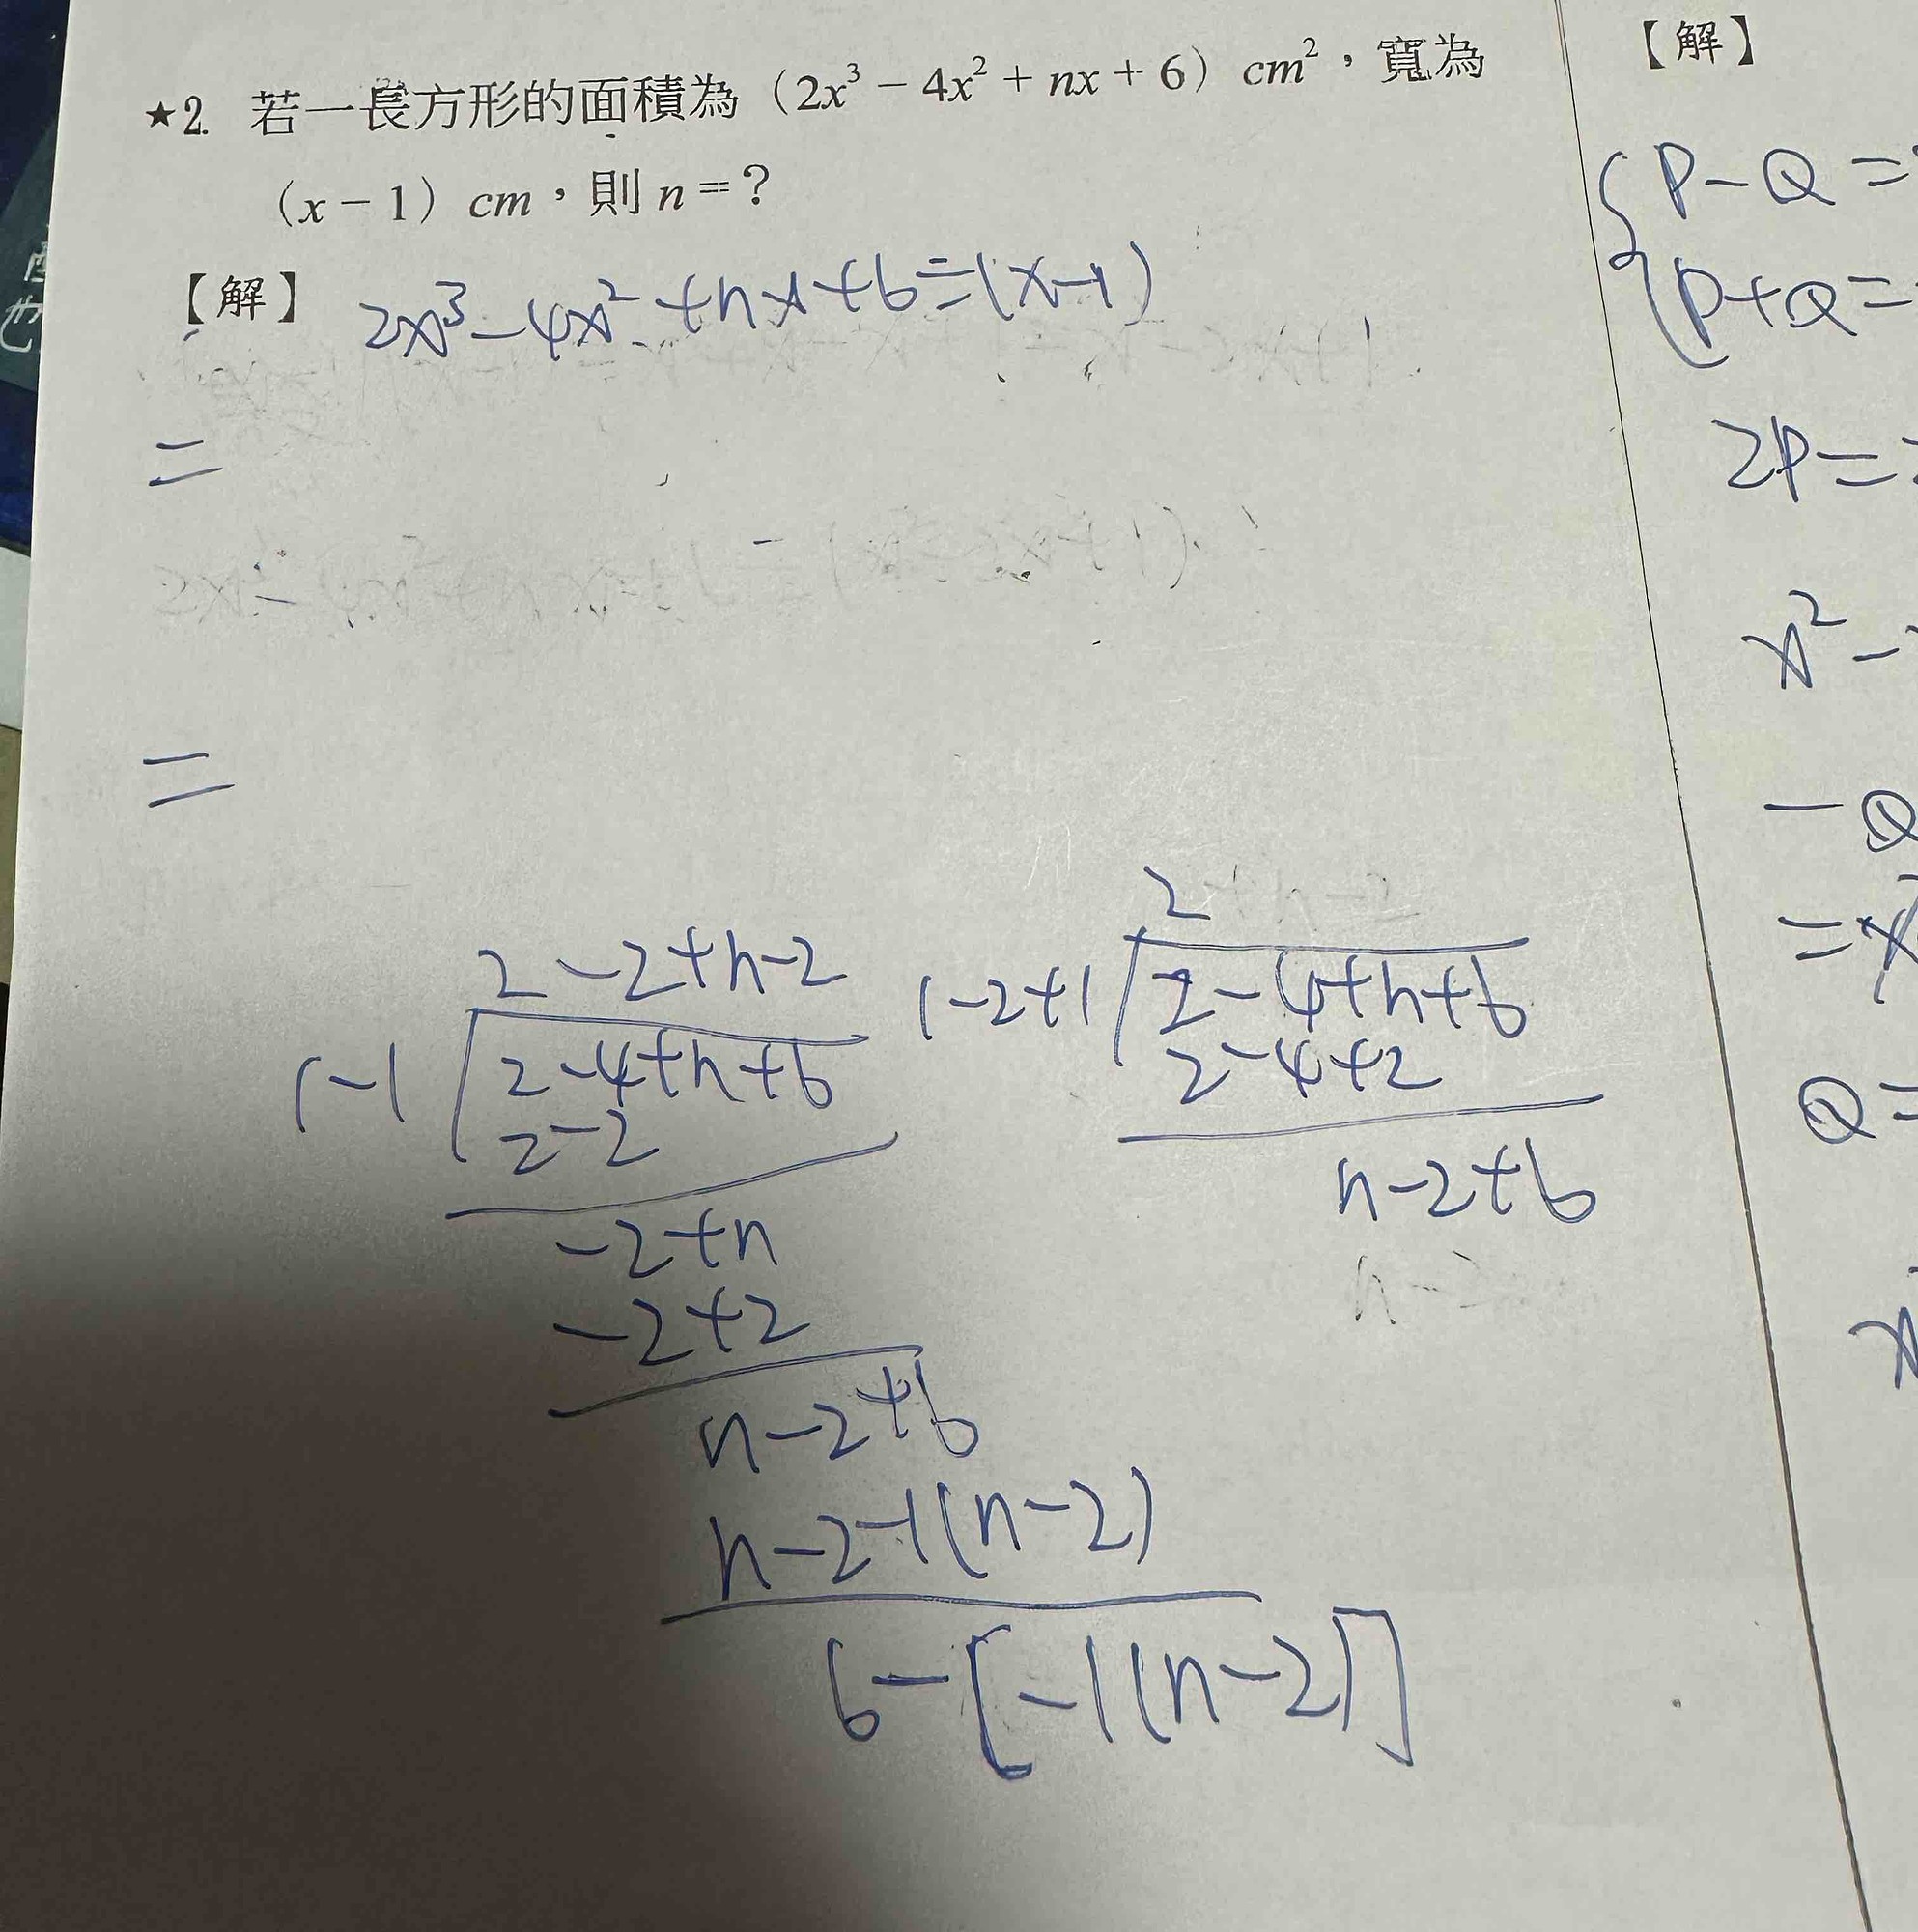 ★2. 若一長方形的面積為（2x³ − 4x² + nx + 6）cm²，寬為
（x − 1）cm，則 n = ？
【解】 2x³-4x²+nx+6=(x-1)
=
=
2-2+n-2
1-1 2-4+n+6
2-2
-2+n
-2+2
n-2+6
n-2-1(n-2)
6-[-1(n-2)]
2
1-2+1 2-4+n+6
2-4+2
n-2+6
【解】
P-Q=
P+Q=
2P=
x²-
-Q
=x
Q=
x